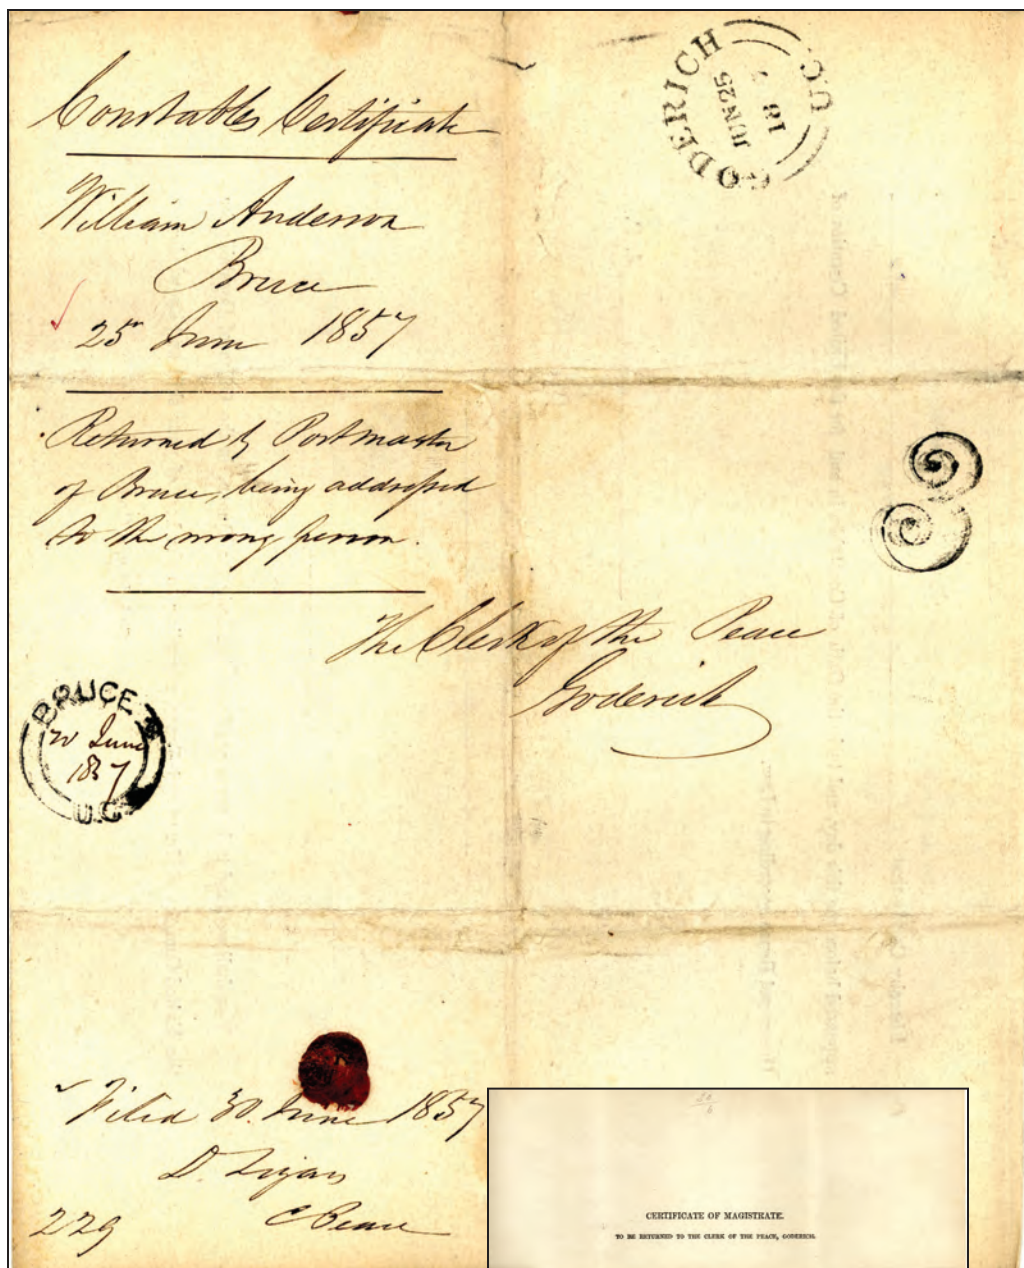 Constables Certificate
William Anderson
Bruce
25 June 1857
Returned by Postmaster
of Bruce, being addressed
to the wrong person.
GODERICH
JUN 25
18 7
U.C.
The Clerk of the Peace
Goderich
BRUCE
June
1857
U.C.
Filed 30. June 1857
D. Lizars
C Peace
229
CERTIFICATE OF MAGISTRATE.
TO BE RETURNED TO THE CLERK OF THE PEACE, GODERICH.